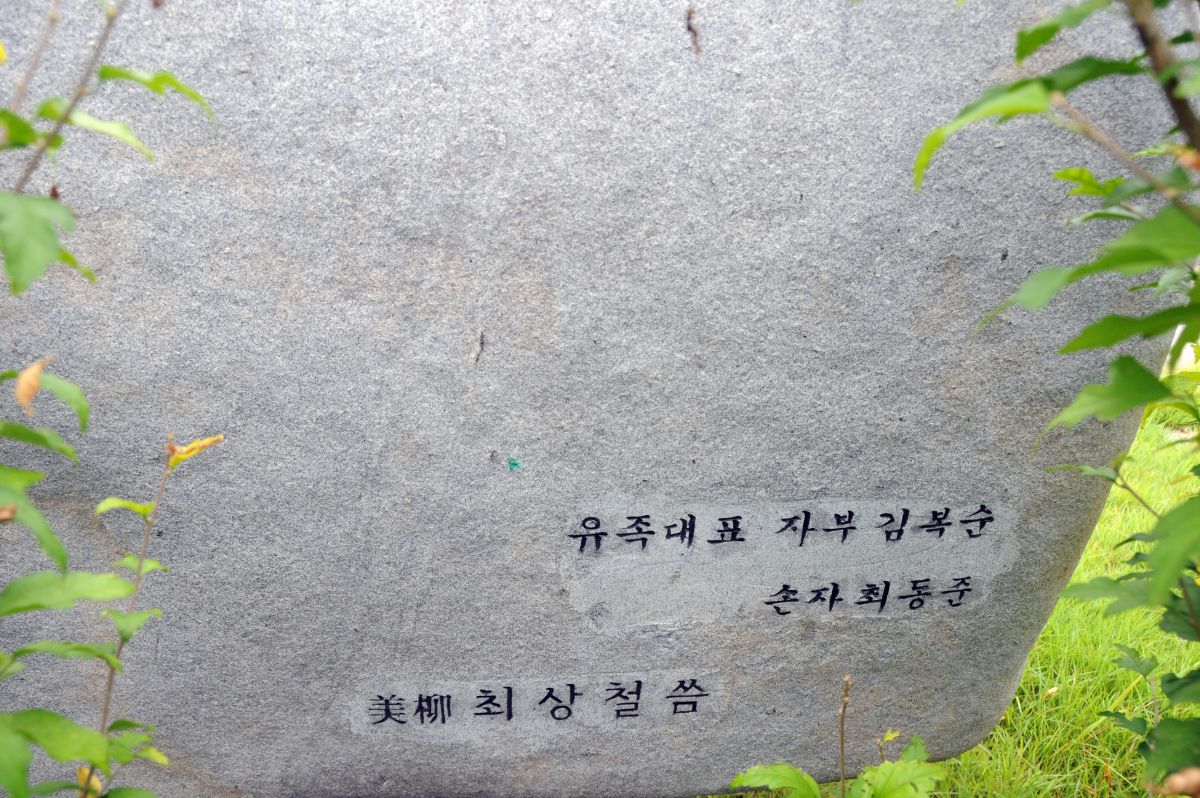 유족대표 자부 김복순
손자 최동준
美柳 최상철 씀